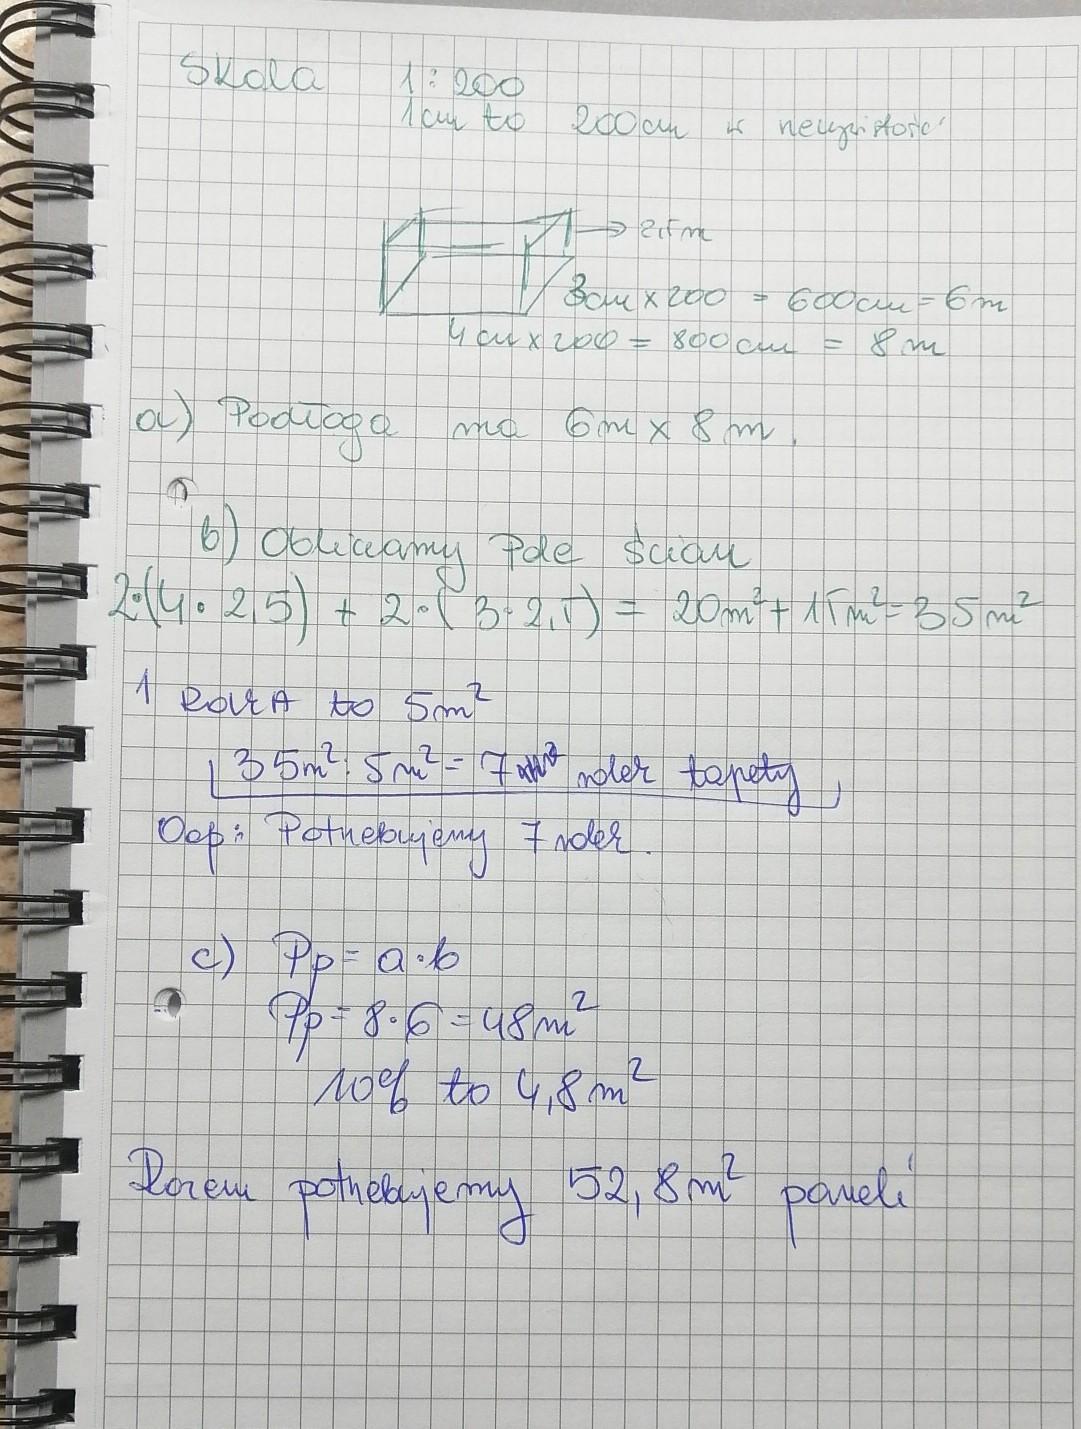 Skala 1:200
1cm to 200cm w rzeczywistości
→ 2,5m
3cm x 200 = 600cm = 6m
4cm x 200 = 800cm = 8m
a) Podłoga ma 6m x 8m.
b) Obliczamy Pole ścian
2·(4·2,5) + 2·(3·2,5) = 20m² + 15m² = 35m²
1 ROLKA to 5m²
35m² : 5m² = 7 rolek tapety
Odp: Potrzebujemy 7 rolek.
c) Pp = a·b
Pp = 8·6 = 48m²
10% to 4,8m²
Razem potrzebujemy 52,8m² paneli